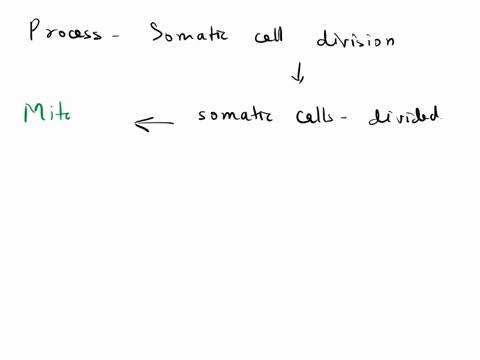 Process - Somatic cell division
↓
Mito ← somatic cells - divided